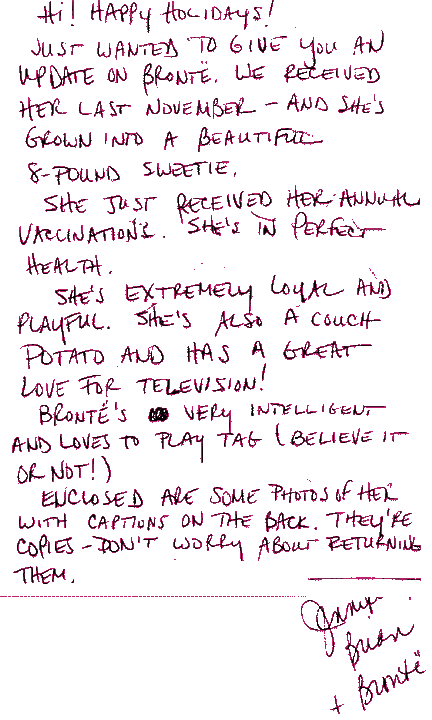 Hi! Happy Holidays!
Just wanted to give you an
update on Brontë. We received
her last November - and she's
grown into a beautiful
8-pound sweetie.
She just received her annual
vaccinations. She's in perfect
health.
She's extremely loyal and
playful. She's also a couch
potato and has a great
love for television!
Brontë's very intelligent
and loves to play tag (believe it
or not!)
Enclosed are some photos of her
with captions on the back. They're
copies - don't worry about returning
them.
Brian
+ Brontë